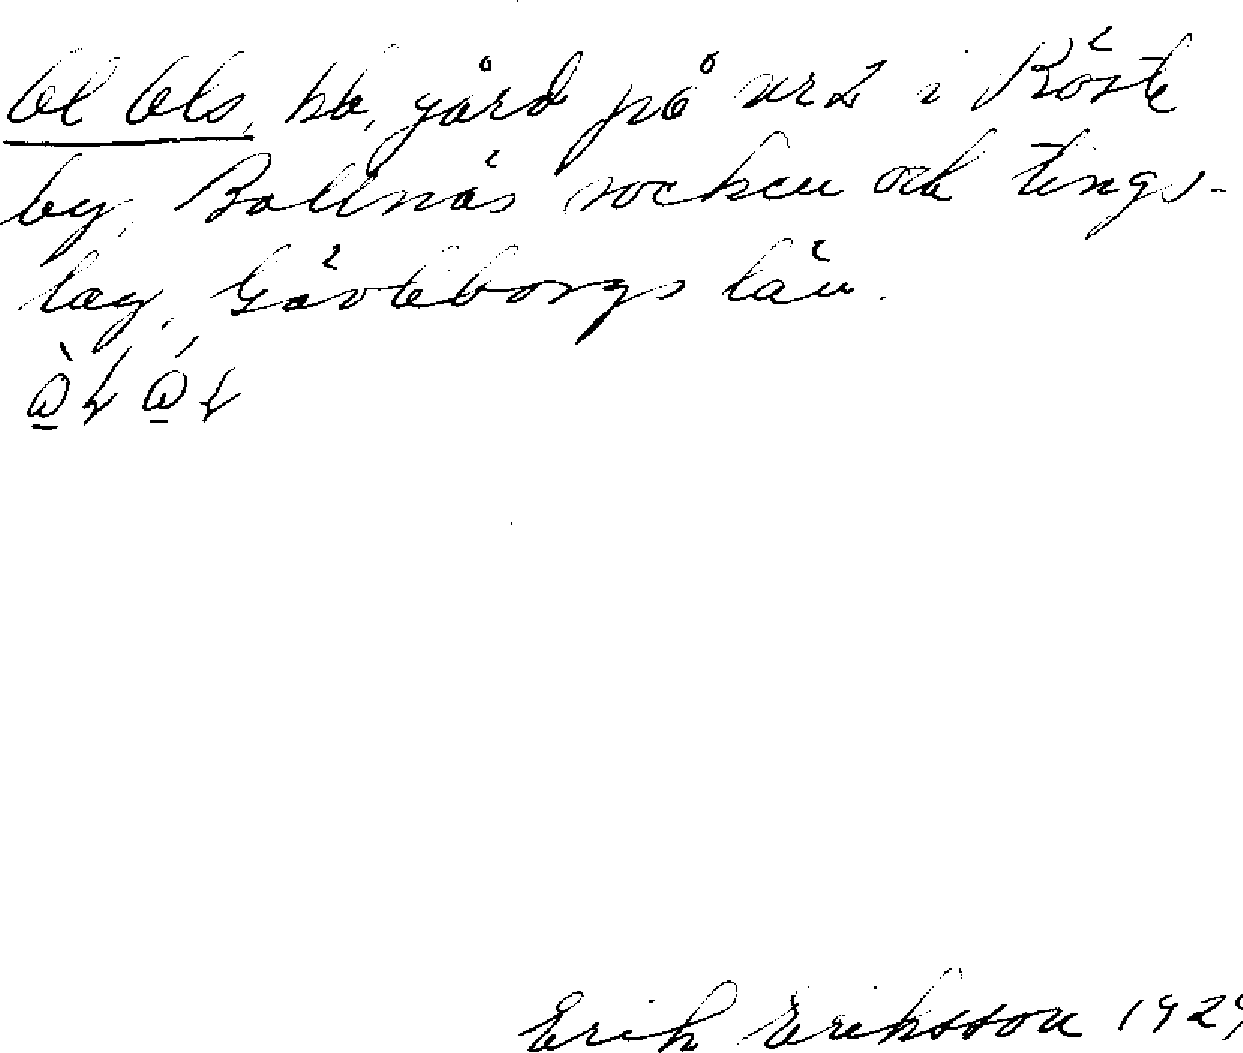 Ol Ols, hb, gård på nr 2 i Röste
by, Bollnäs socken och tings-
lag, Gävleborgs län.
Erik Eriksson 1929